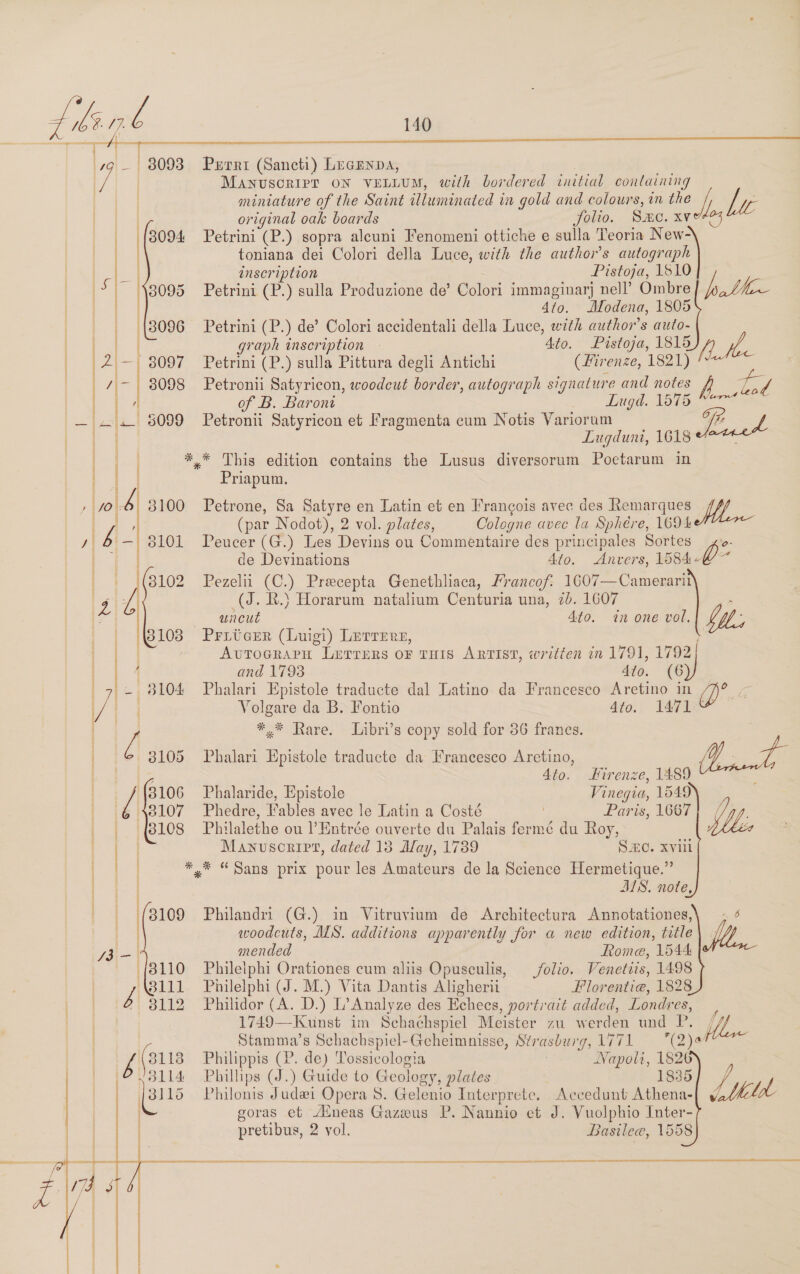 140
19 - 3093 Petri (Sancti) Legenda,
Manuscript on vellum, with bordered initial containing
miniature of the Saint illuminated in gold and colours, in the
original oak boards folio. Sæc. xv
3094 Petrini (P.) sopra alcuni Fenomeni ottiche e sulla Teoria New-
toniana dei Colori della Luce, with the author's autograph
inscription Pistoja, 1810
5 - 3095 Petrini (P.) sulla Produzione de' Colori immaginarj nell' Ombre
4to. Modena, 1805
3096 Petrini (P.) de' Colori accidentali della Luce, with author's auto-
graph inscription 4to. Pistoja, 1815
2 - 3097 Petrini (P.) sulla Pittura degli Antichi (Firenze, 1821)
1 - 3098 Petronii Satyricon, woodcut border, autograph signature and notes
of B. Baroni Lugd. 1575
3099 Petronii Satyricon et Fragmenta cum Notis Variorum
Lugduni, 1618
*** This edition contains the Lusus diversorum Poetarum in
Priapum.
10 6 3100 Petrone, Sa Satyre en Latin et en François avec des Remarques
(par Nodot), 2 vol. plates, Cologne avec la Sphére, 1694
6 - 3101 Peucer (G.) Les Devins ou Commentaire des principales Sortes
de Devinations 4to. Anvers, 1584
3102 Pezelii (C.) Præcepta Genethliaca, Francof. 1607—Camerarii
(J. R.) Horarum natalium Centuria una, ib. 1607
2 6 uncut 4to. in one vol.
3103 Pfluger (Luigi) Lettere,
Autograph Letters of this Artist, written in 1791, 1792
and 1793 4to. (6)
7 - 3104 Phalari Epistole traducte dal Latino da Francesco Aretino in
Volgare da B. Fontio 4to. 1471
*** Rare. Libri's copy sold for 36 francs.
3105 Phalari Epistole traducte da Francesco Aretino,
4to. Firenze, 1489
3106 Phalaride, Epistole Vinegia, 1549
3107 Phedre, Fables avec le Latin a Costé Paris, 1667
3108 Philalethe ou l'Entrée ouverte du Palais fermé du Roy,
Manuscript, dated 13 May, 1739 Sæc. xviii
*** "Sans prix pour les Amateurs de la Science Hermetique."
MS. note,
3109 Philandri (G.) in Vitruvium de Architectura Annotationes,
woodcuts, MS. additions apparently for a new edition, title
13 - mended Romæ, 1544
3110 Philelphi Orationes cum aliis Opusculis, folio. Venetiis, 1498
3111 Philelphi (J. M.) Vita Dantis Aligherii Florentiæ, 1828
3112 Philidor (A. D.) L'Analyze des Echecs, portrait added, Londres,
1749—Kunst im Schachspiel Meister zu werden und P.
Stamma's Schachspiel-Geheimnisse, Strasburg, 1771 (2)
3113 Philippis (P. de) Tossicologia Napoli, 1826
6 3114 Phillips (J.) Guide to Geology, plates 1835
3115 Philonis Judæi Opera S. Gelenio Interprete. Accedunt Athena-
goras et Æneas Gazæus P. Nannio et J. Vuolphio Inter-
pretibus, 2 vol. Basileæ, 1558